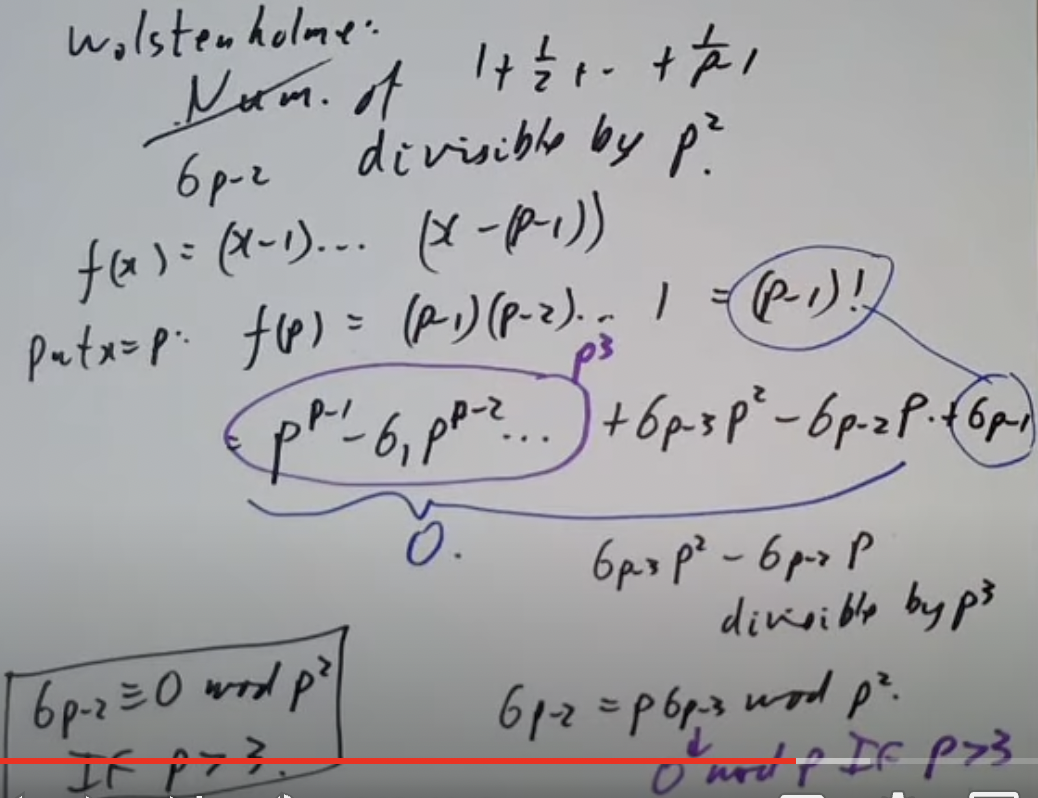 Wolstenholme:
Num. of 1 + 1/2 + .. + 1/p-1
6p-2 divisible by p².
f(x) = (x-1)... (x-(p-1))
Put x=p: f(p) = (p-1)(p-2)... 1 = (p-1)!
p³
= p^(p-1) - 6₁p^(p-2)... + 6p-3 p² - 6p-2 p. + 6p-1
0.
6p-3 p² - 6p-2 p
divisible by p³
6p-2 ≡ 0 mod p²
IF p>3.
6p-2 = p 6p-3 mod p².
↓
0 mod p IF p>3